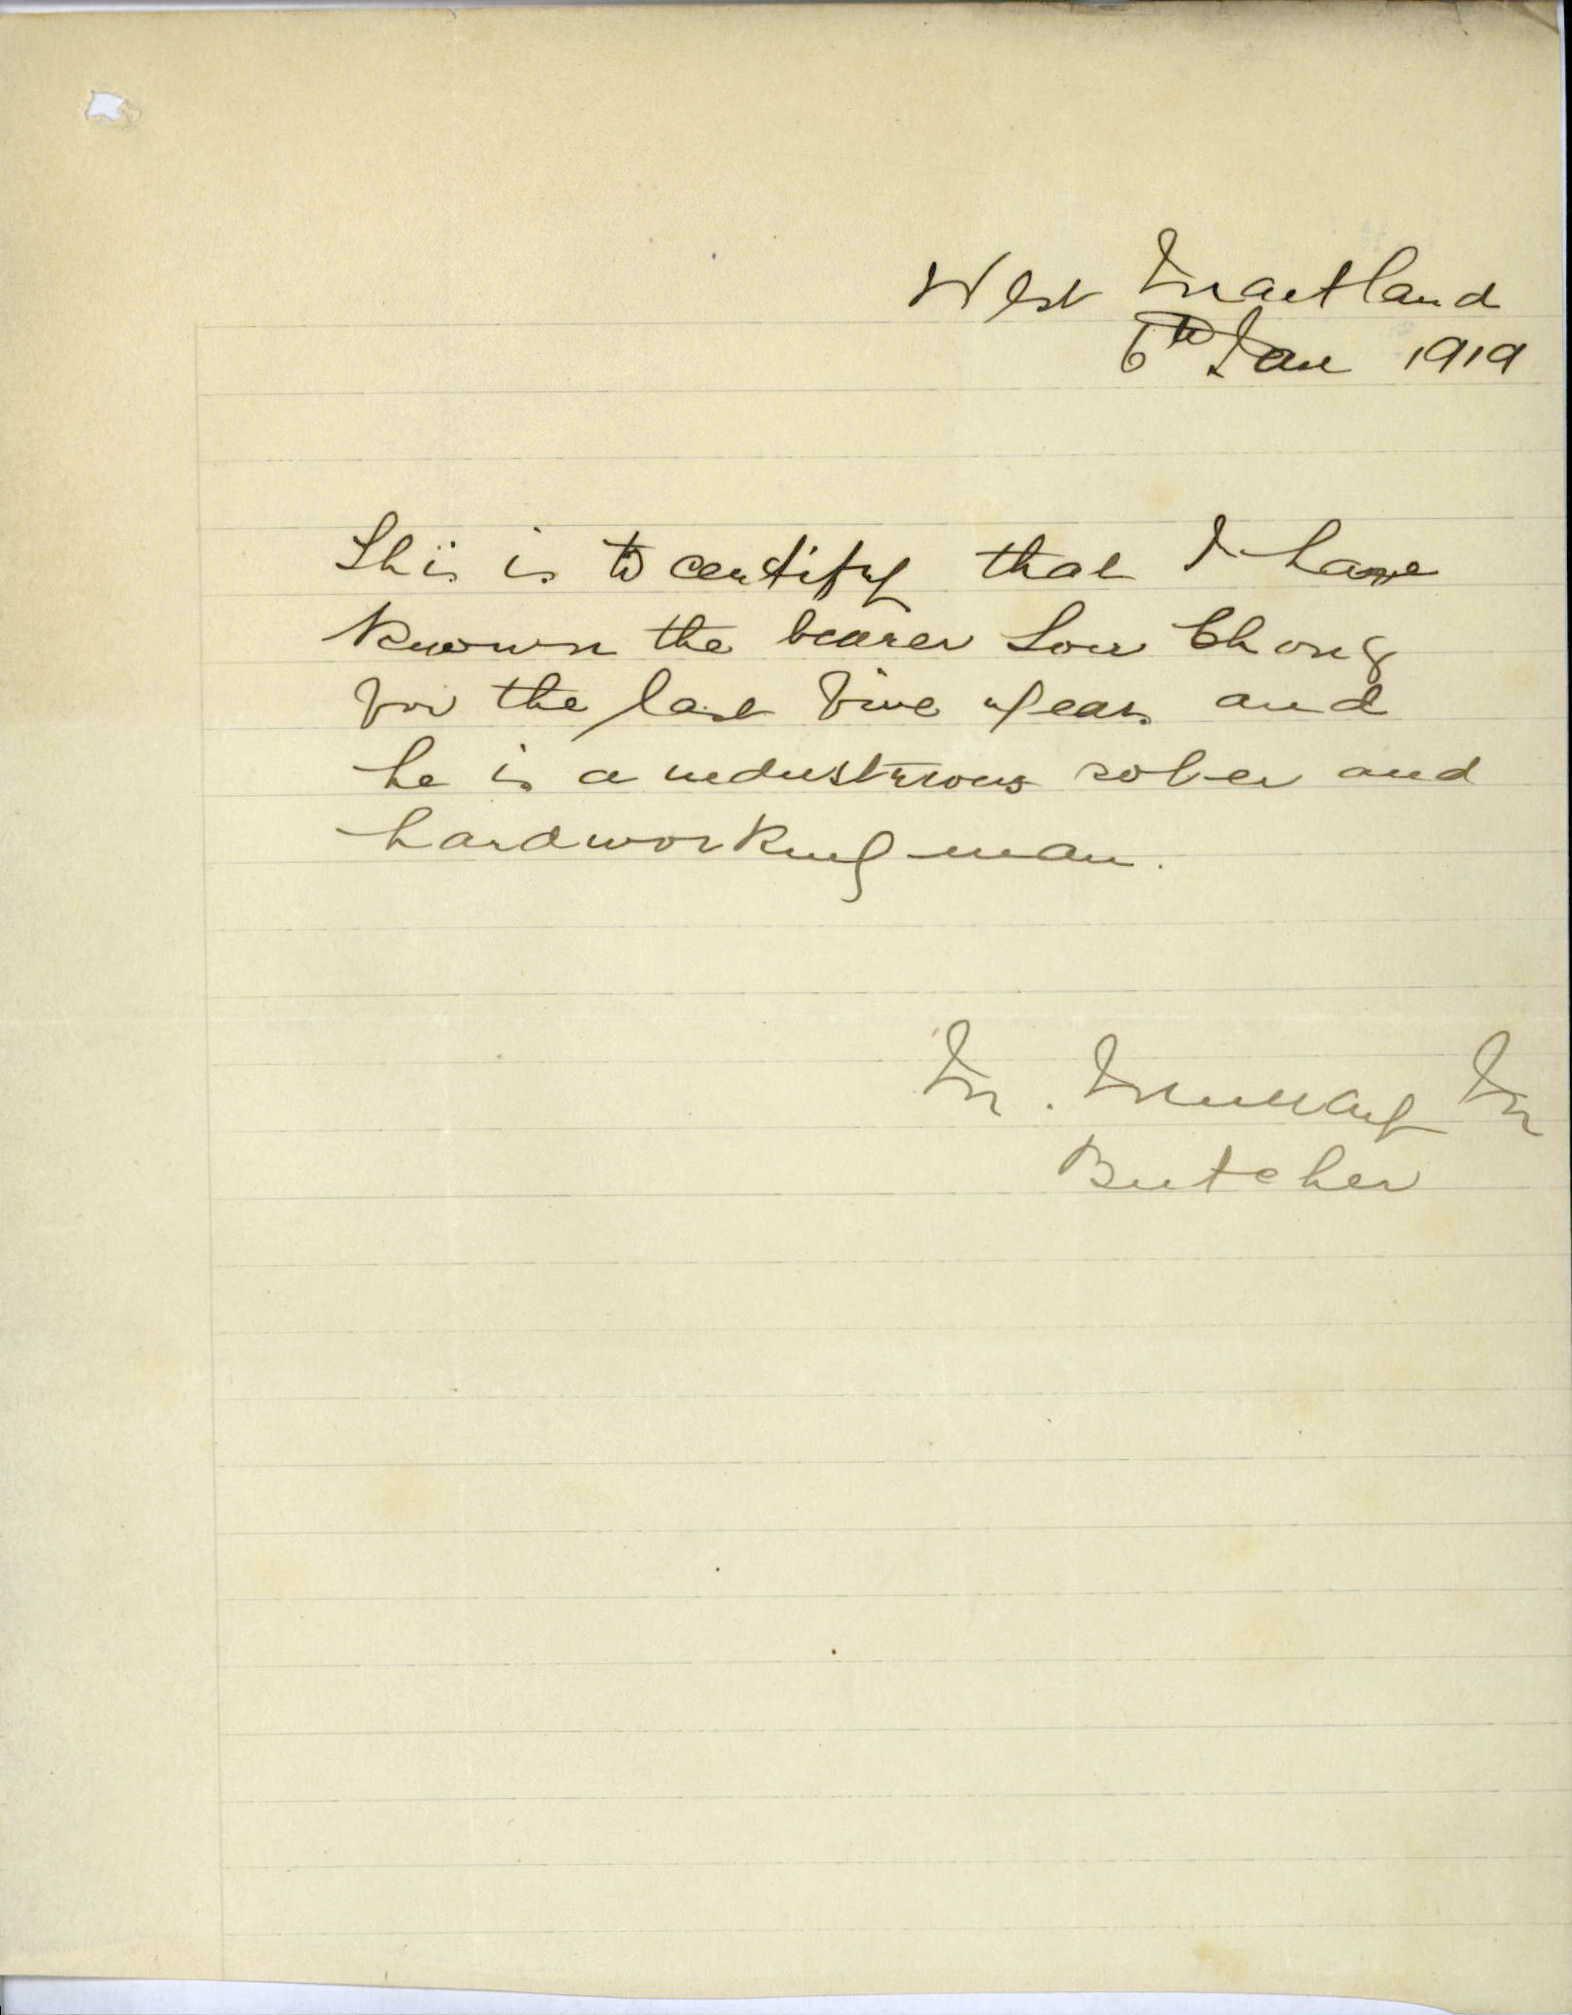 West Maitland
6th Jan 1919
This is to certify that I have
known the bearer Low Chong
for the last five years and
he is a industrious sober and
hardworking man.
M. Murray
Butcher